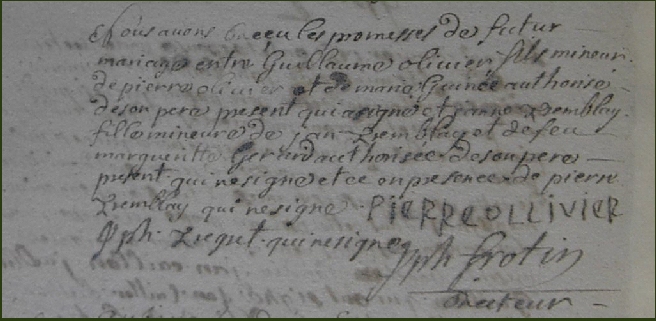 Nous avons Receu les promesses de futur
mariage entre Guillaume olivier fils mineur
de pierre olivier et de marie Guinée authorisé
de son pere present qui a signé et janne Tremblay
fille mineure de jan Tremblay et de feu
margueritte Gerard authorisée de son pere
present qui ne signe et ce en presence de pierre
Tremblay qui ne signe PIERRE OLLIVIER
jph qui ne signe jph frotin
Recteur